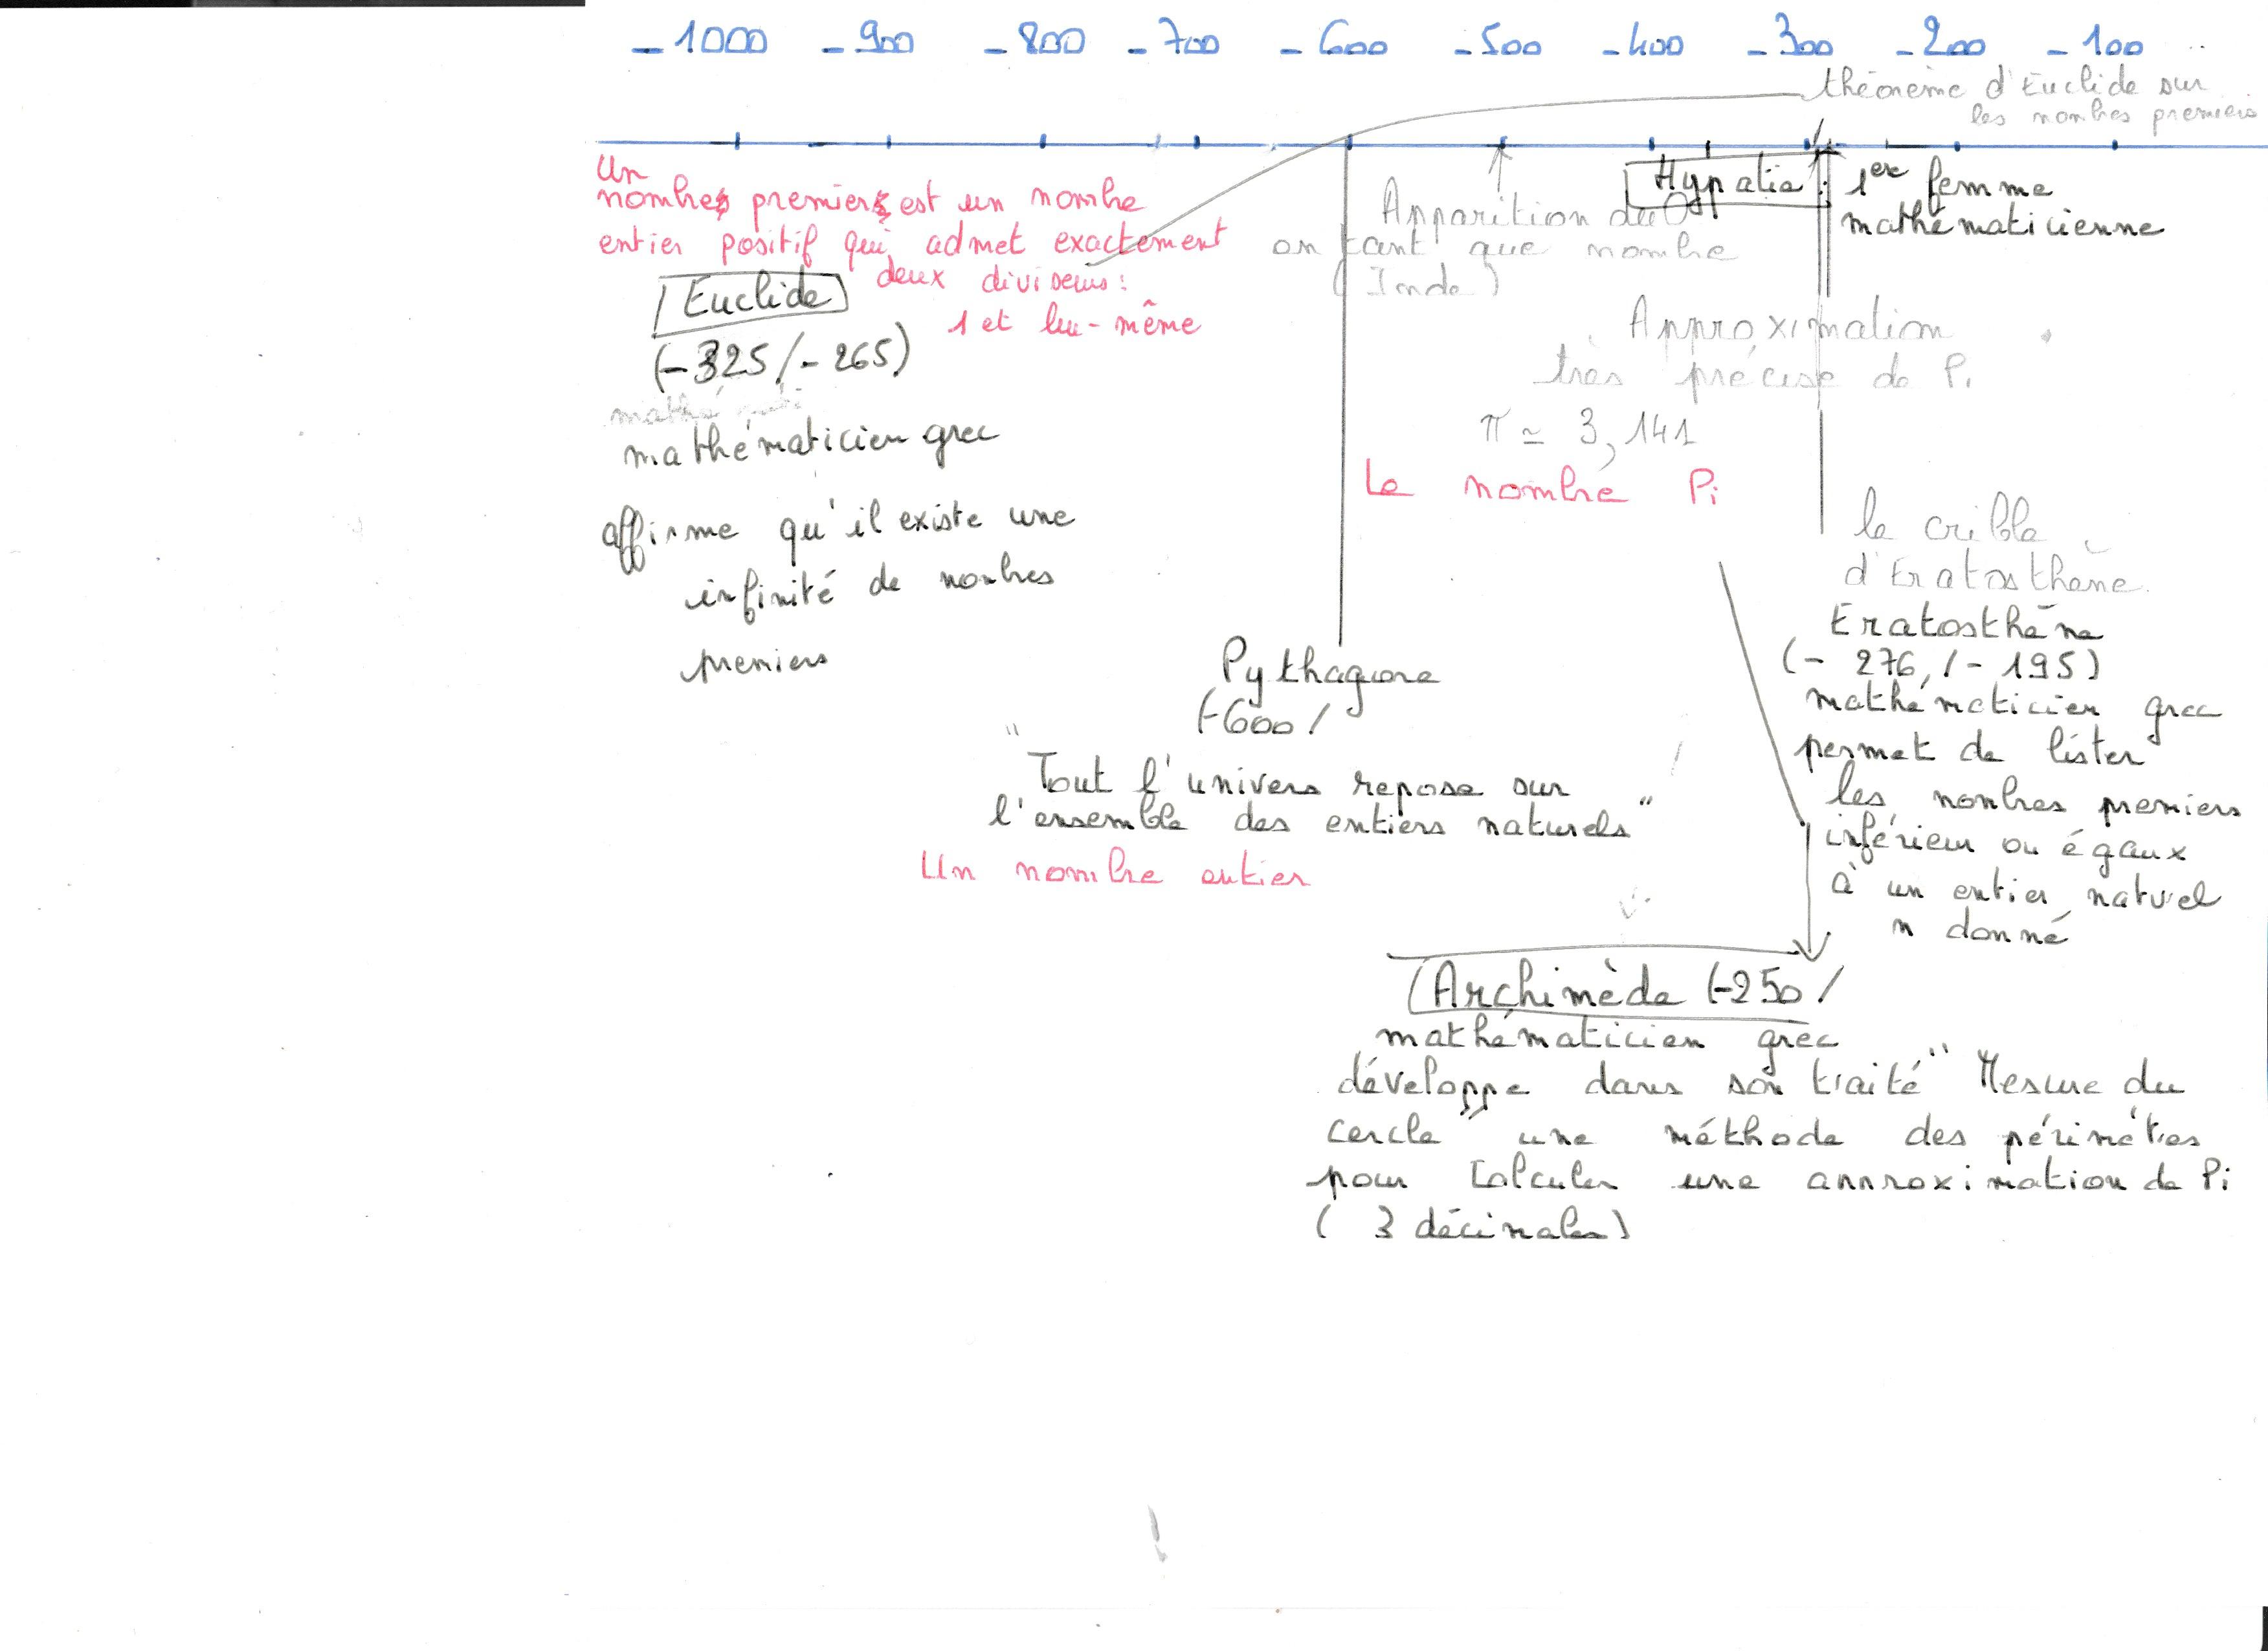 -1000 -900 -800 -700 -600 -500 -400 -300 -200 -100
théorème d'Euclide sur
les nombres premiers
Un
nombres premiers est un nombre
entier positif qui admet exactement
deux diviseurs :
1 et lui-même
Euclide
(-325/-265)
mathématicien grec
affirme qu'il existe une
infinité de nombres
premiers
Apparition du 0
en tant que nombre
(Inde)
Hypatie : 1ere femme
mathématicienne
Approximation
très précise de Pi
π ≃ 3,141
Le nombre Pi
le crible
d'Eratosthène.
Eratosthène
(-276,/-195)
mathématicien grec
permet de lister
les nombres premiers
inférieur ou égaux
à un entier naturel
n donné
Pythagore
(-600/
"Tout l'univers repose sur
l'ensemble des entiers naturels"
Un nombre entier
Archimède (-250/
mathématicien grec
développe dans son traité "Mesure du
cercle" une méthode des périmètres
pour calculer une approximation de Pi
(3 décimales)